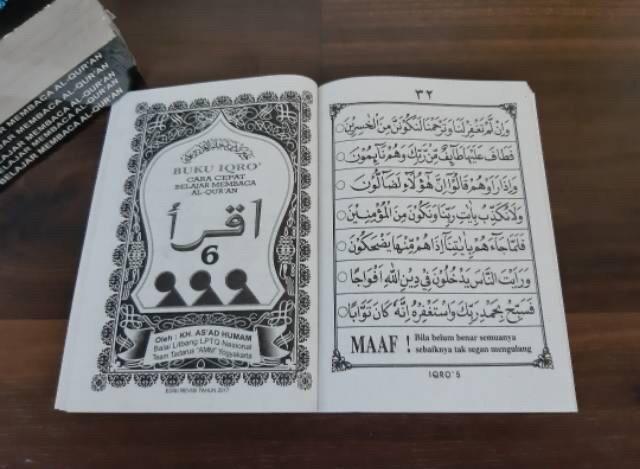 BELAJAR MEMBACA AL-QUR'AN
BELAJAR MEMBACA AL-QUR'AN
BELAJAR MEMBACA AL-QUR'AN
BELAJAR MEMBACA AL-QUR'AN
BELAJAR MEMBACA AL-QUR'AN
BUKU IQRO'
CARA CEPAT
BELAJAR MEMBACA
AL-QUR'AN
اقرأ
6
Oleh : KH. AS'AD HUMAM
Balai Litbang LPTQ Nasional
Team Tadarus "AMM" Yogyakarta
EDISI REVISI TAHUN 2017
٣٢
وَاِنْ لَّمْ تَغْفِرْلَنَا وَتَرْحَمْنَا لَنَكُوْنَنَّ مِنَ الْخٰسِرِيْنَ
فَطَافَ عَلَيْهَا طَآئِفٌ مِّنْ رَّبِّكَ وَهُمْ نَآئِمُوْنَ
وَاِذَا رَاَوْهُمْ قَالُوْٓا اِنَّ هٰٓؤُلَآءِ لَضَآلُّوْنَ
وَلَا نُكَذِّبَ بِاٰيٰتِ رَبِّنَا وَنَكُوْنَ مِنَ الْمُؤْمِنِيْنَ
فَلَمَّا جَآءَهُمْ بِاٰيٰتِنَآ اِذَاهُمْ مِّنْهَا يَضْحَكُوْنَ
وَرَاَيْتَ النَّاسَ يَدْخُلُوْنَ فِيْ دِيْنِ اللّٰهِ اَفْوَاجًا
فَسَبِّحْ بِحَمْدِ رَبِّكَ وَاسْتَغْفِرْهُ اِنَّهٗ كَانَ تَوَّابًا
MAAF ! Bila belum benar semuanya
sebaiknya tak segan mengulang
IQRO' 5